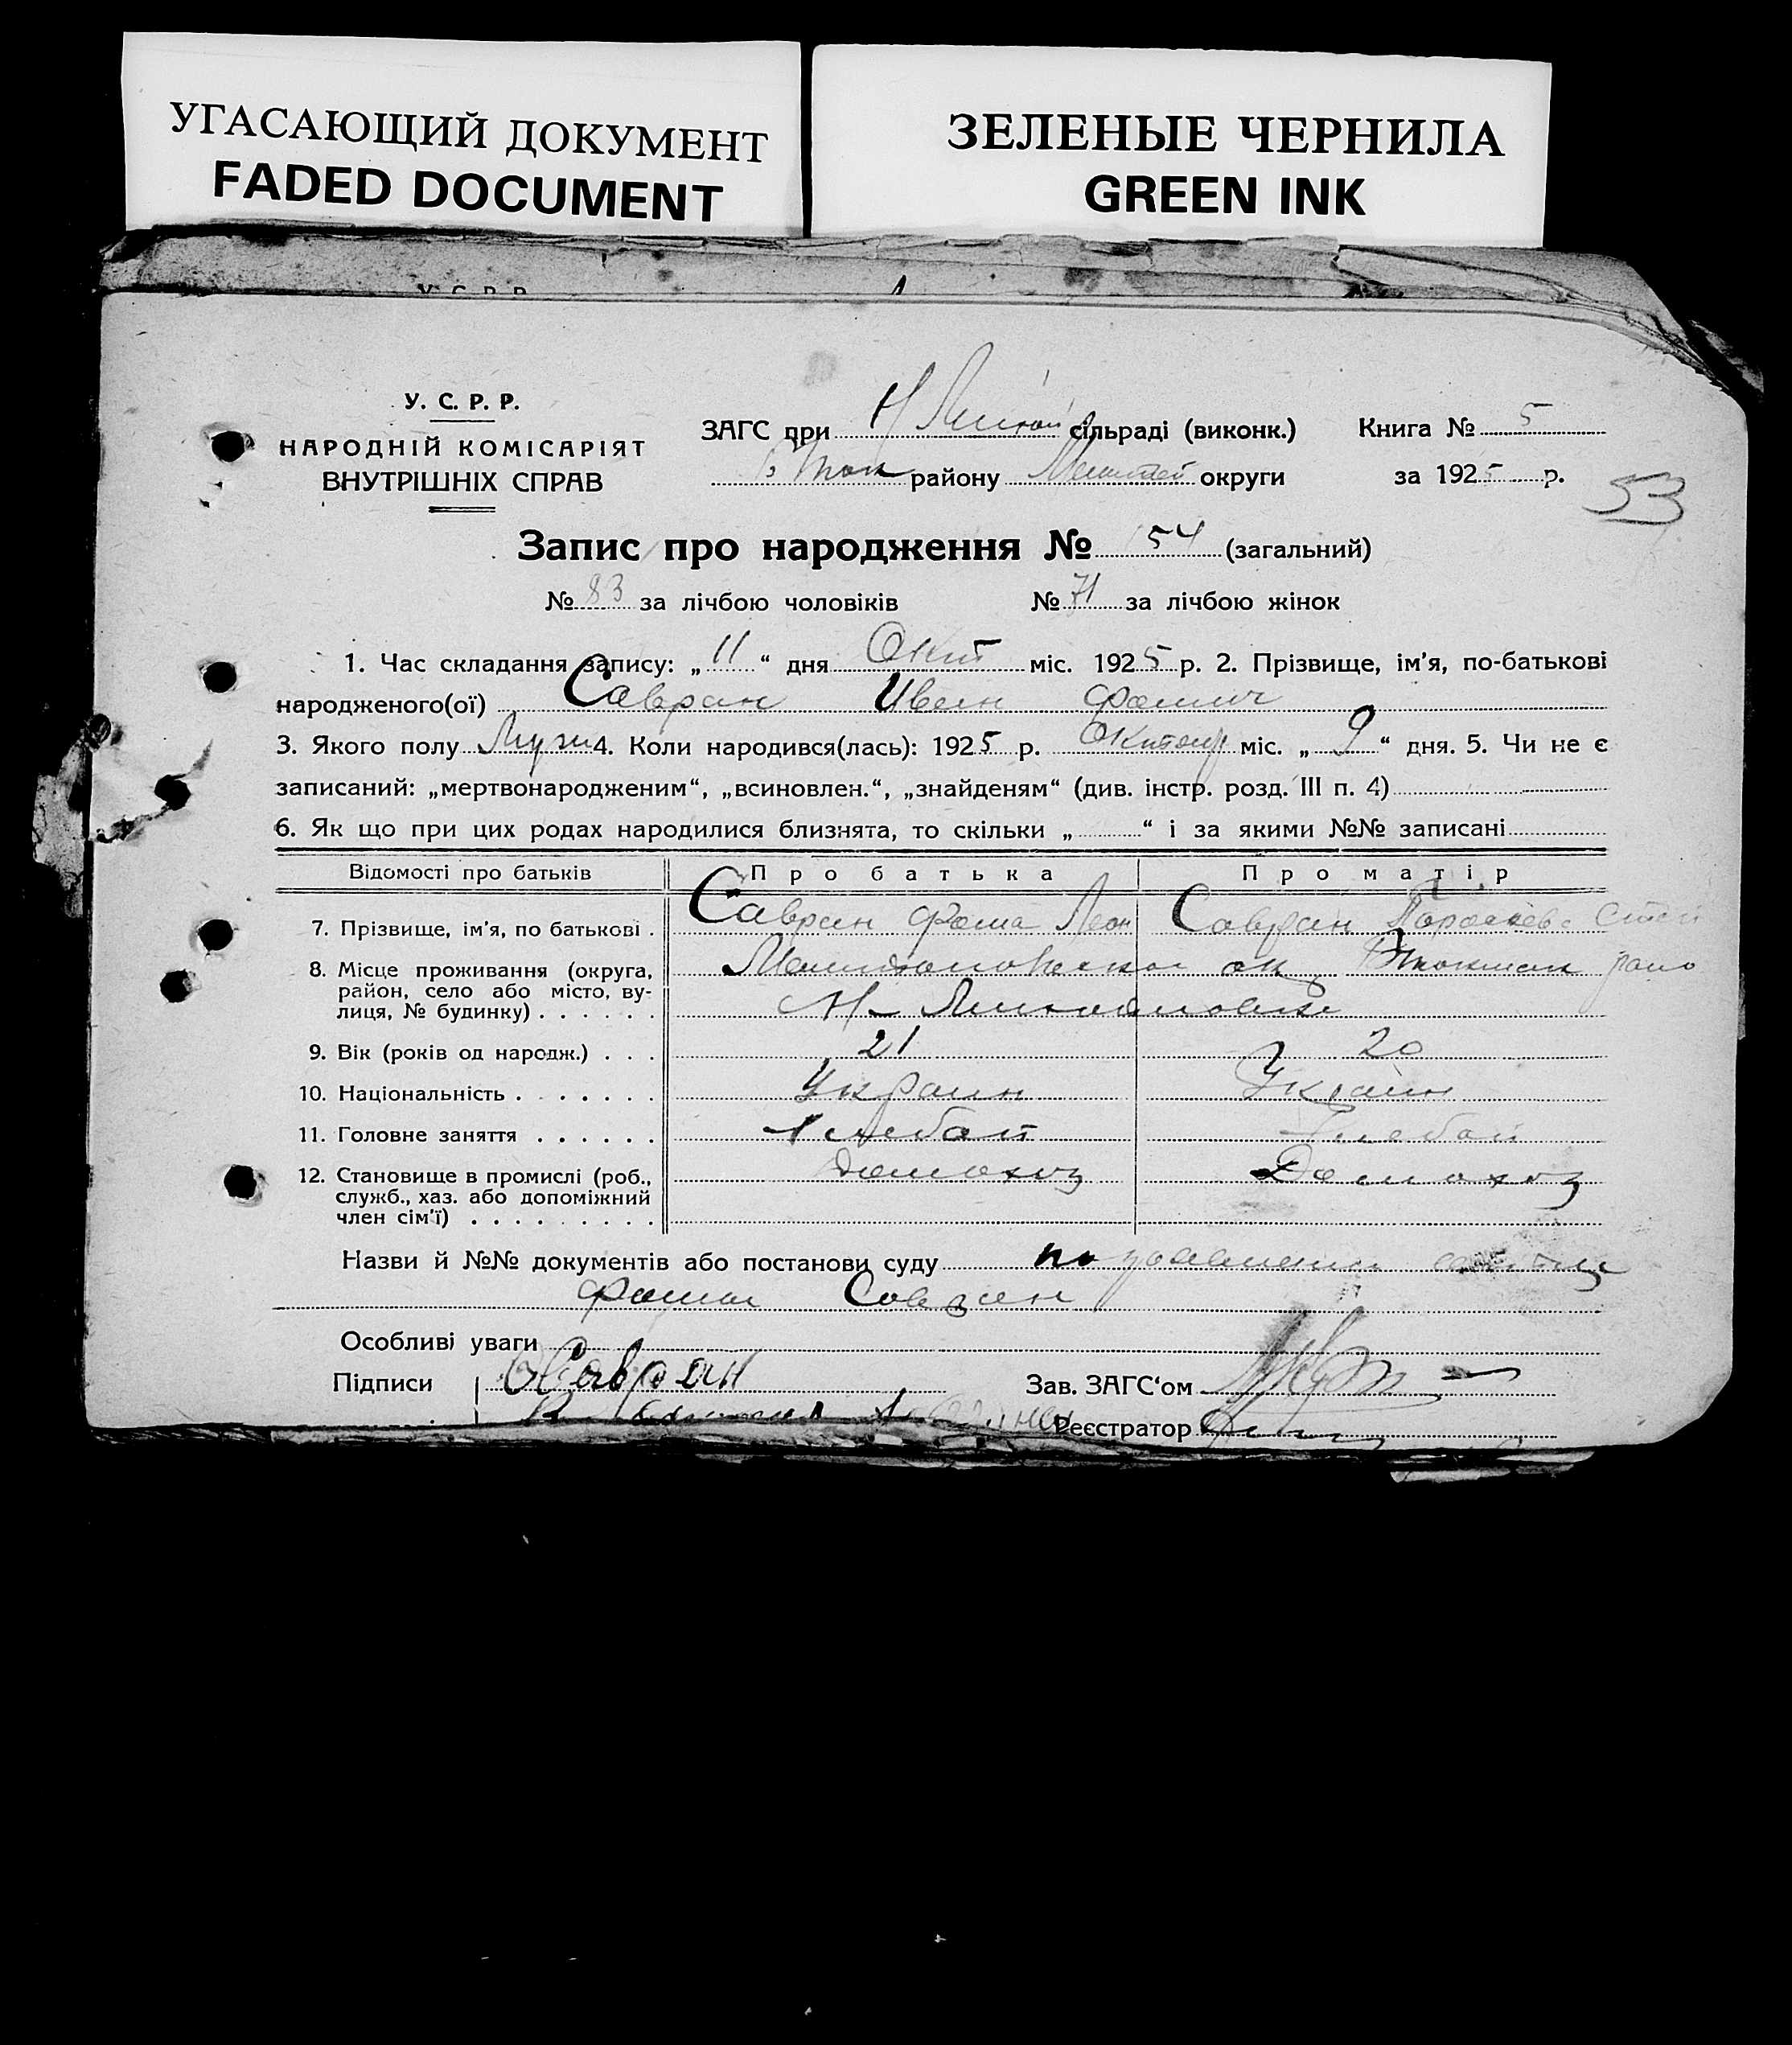 УГАСАЮЩИЙ ДОКУМЕНТ
FADED DOCUMENT
ЗЕЛЕНЫЕ ЧЕРНИЛА
GREEN INK
У. С. Р. Р.
НАРОДНІЙ КОМІСАРІЯТ
ВНУТРІШНІХ СПРАВ
ЗАГС при Н сільраді (виконк.) Книга № 5
Б Ток району округи за 1925 р.
53
Запис про народження № 154 (загальний)
№ 83 за лічбою чоловіків № 71 за лічбою жінок
1. Час складання запису: „ 11 “ дня Окт міс. 1925 р. 2. Прізвище, ім'я, по-батькові
народженого(ої) Савран Иван Фомич
3. Якого полу Муж 4. Коли народився(лась): 1925 р. Октябр міс. „ 9 “ дня. 5. Чи не є
записаний: „мертвонародженим“, „всиновлен.“, „знайденям“ (див. інстр. розд. III п. 4)
6. Як що при цих родах народилися близнята, то скільки „ “ і за якими №№ записані
Відомості про батьків Про батька Про матір
7. Прізвище, ім'я, по батькові . Савран Фома Леон Савран Параскева Степ
8. Місце проживання (округа, район, село або місто, вулиця, № будинку) . . . . . . Мелитопольской ок Б Токмак рано
Н-
9. Вік (років од народж.) . . . 21 20
10. Національність . . . . . . . Украин Украин
11. Головне заняття . . . . . . Хлебоп Хлебоп
12. Становище в промислі (роб., служб., хаз. або допоміжний член сім'ї) . . . . . . . . . домохоз Домохоз
Назви й №№ документів або постанови суду по заявлению отца
Фома Савран
Особливі уваги
Підписи Савран Зав. ЗАГС‘ом
Реєстратор